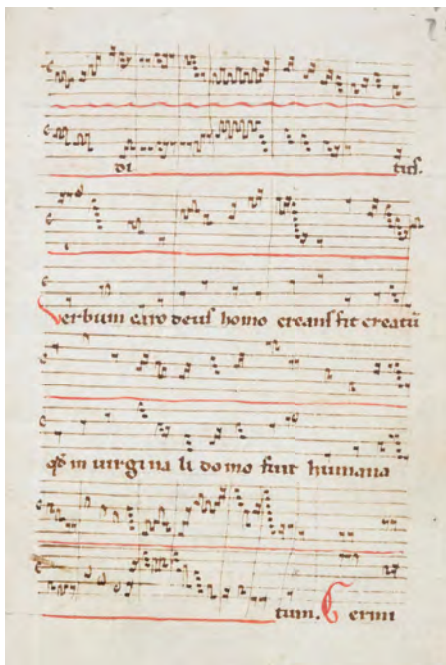 di tus.
Verbum caro deus homo creans fit creatū
in virgina li domo fuit humana
tum. Germi